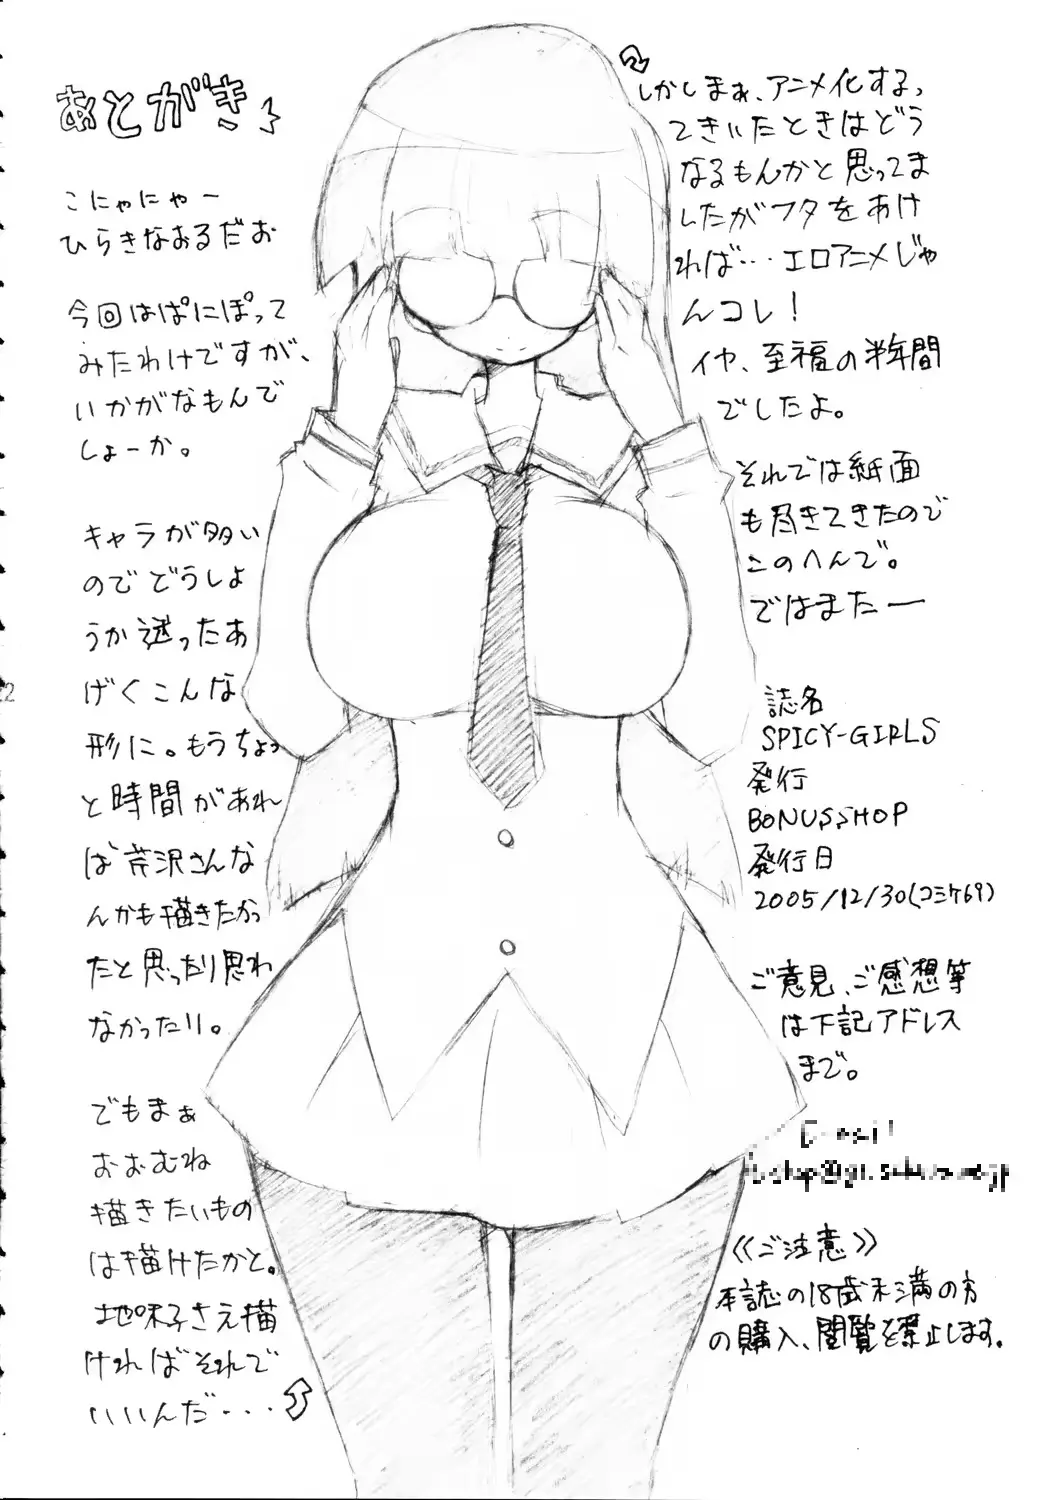 あとがき
こにゃにゃー
ひらきなおるだお
今回はぱにぽって
みたわけですが、
いかがなもんで
しょーか。
キャラが多い
のでどうしよ
うか迷ったあ
げくこんな
形に。もうちょっ
と時間があれ
ば芹沢さんな
んかも描きたかっ
たと思ったり思わ
なかったり。
でもまぁ
おおむね
描きたいもの
は描けたかと。
地味子さえ描
ければそれで
いいんだ・・・
しかしまぁ、アニメ化するっ
てきいたときはどう
なるもんかと思ってま
したがフタをあけ
れば・・・エロアニメじゃ
んコレ!
イヤ、至福の半年間
でしたよ。
それでは紙面
も尽きてきたので
このへんで。
ではまたー
誌名
SPICY-GIRLS
発行
BONUSSHOP
発行日
2005/12/30(コミケ69)
ご意見、ご感想等
は下記アドレス
まで。
E-mail
《ご注意》
本誌の18歳未満の方
の購入、閲覧を禁止します。